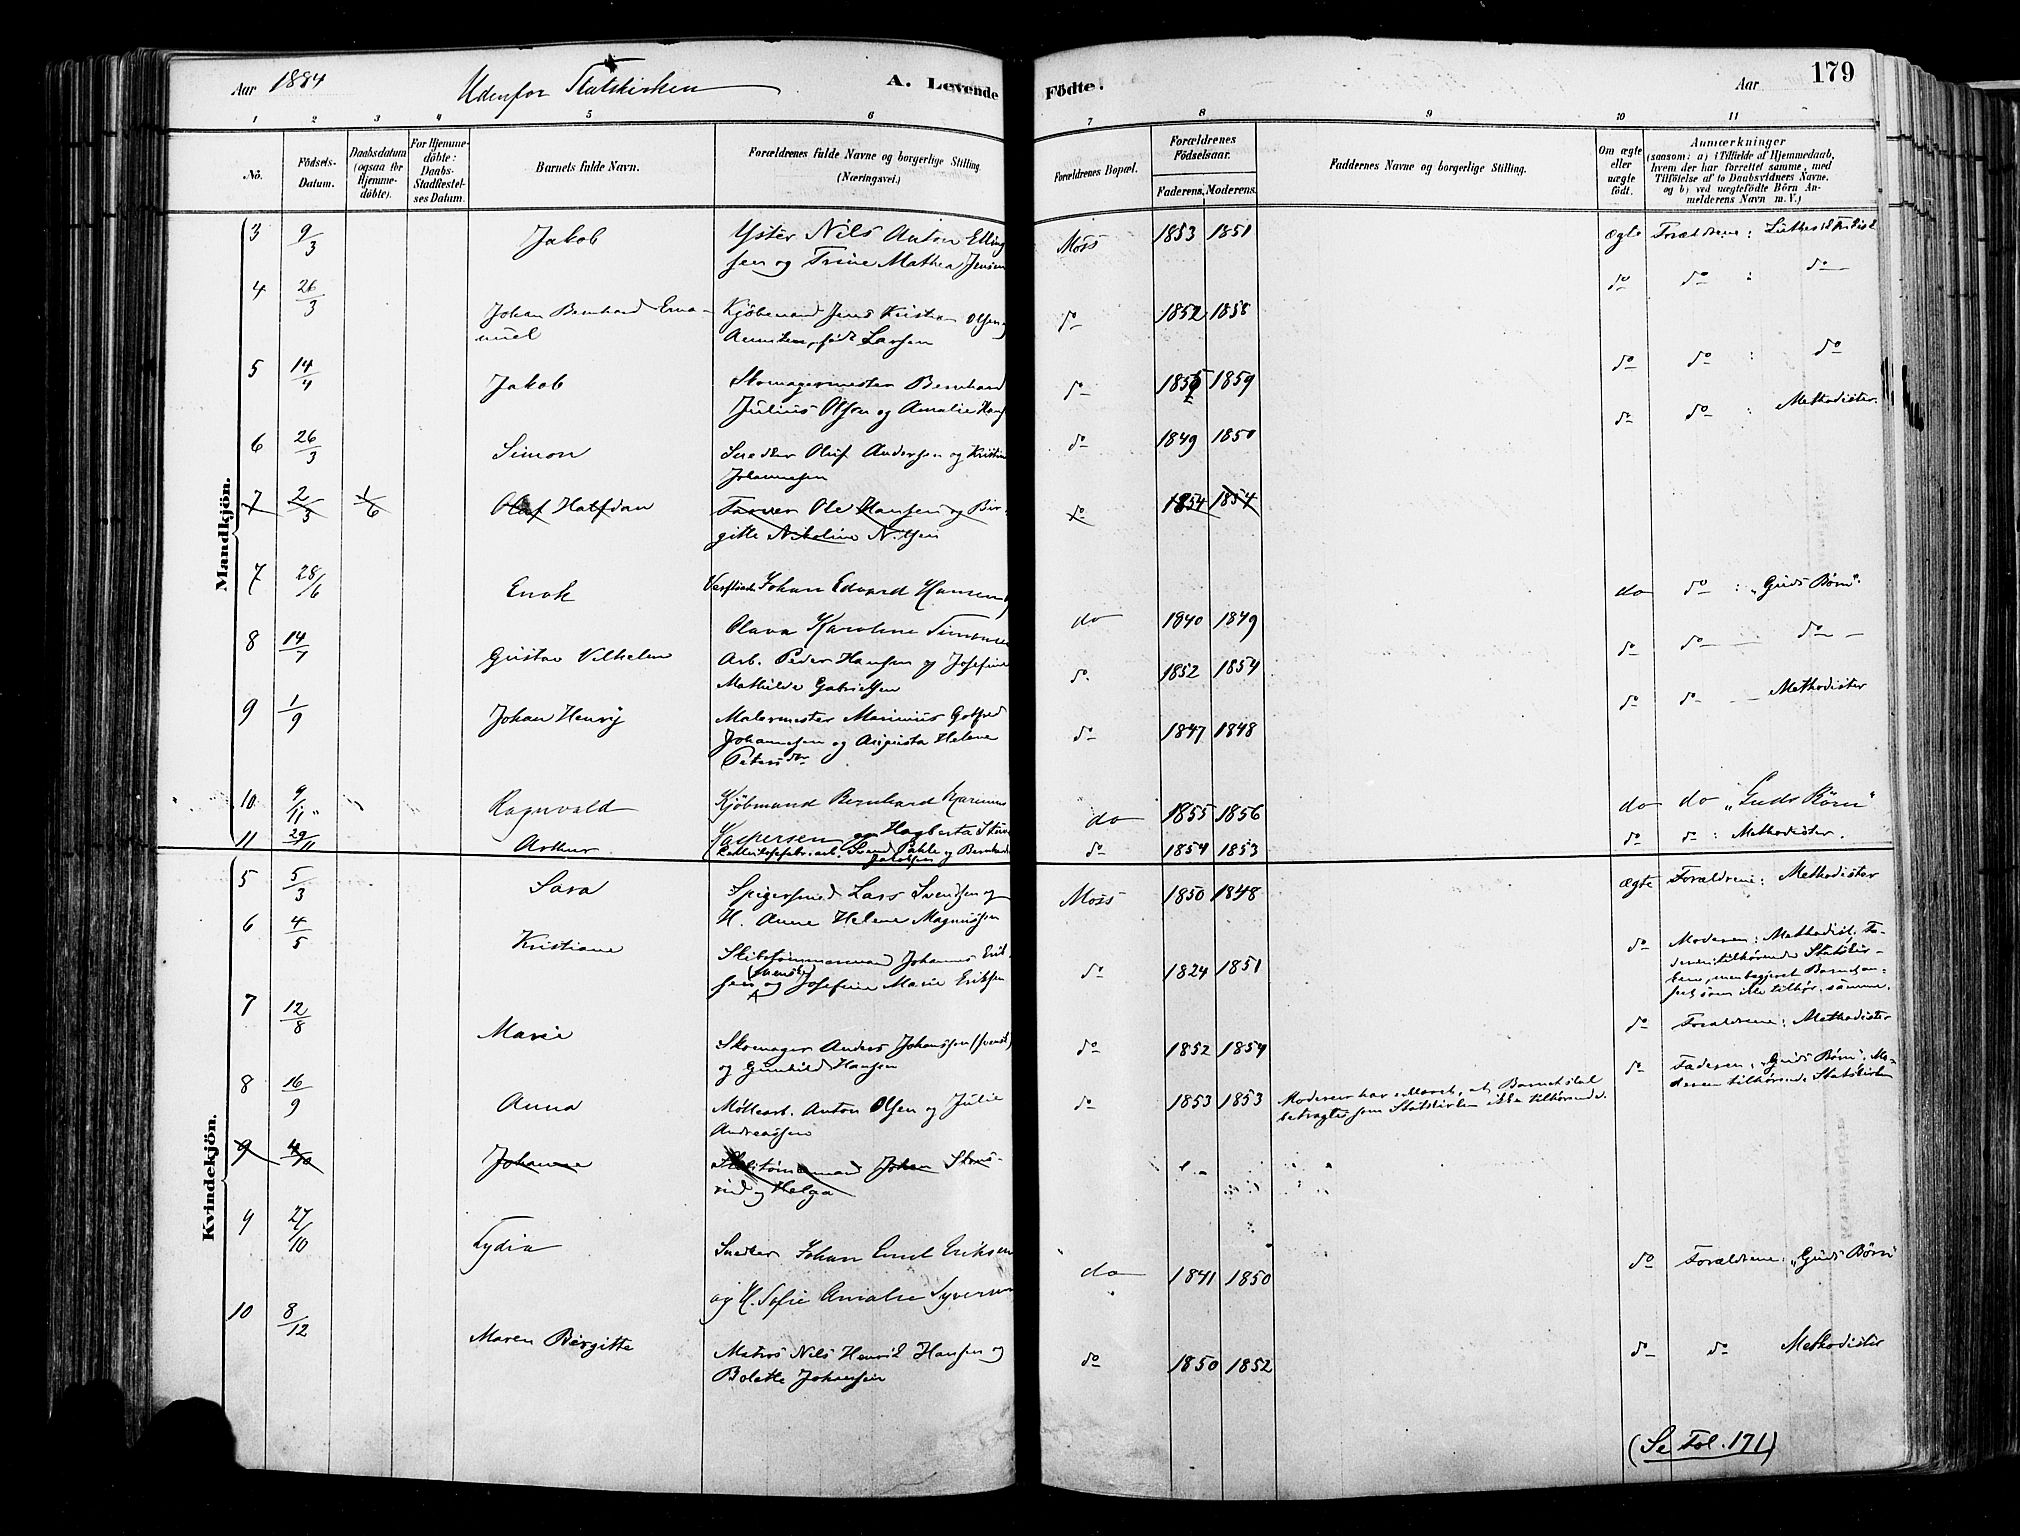 Aar 1884 Udenfor Statskirken A. Levende Födte. Aar 179
1 2 3 4 5 6 7 8 9 10 11
No.
Födsels-
Datum.
Daabsdatum
(ogsaa for
Hjemme-
döbte).
For Hjemme-
döbte:
Daabs-
Stadfæstel-
ses Datum.
Barnets fulde Navn.
Forældrenes fulde Navne og borgerlige Stilling.
(Næringsvei.)
Forældrenes Bopæl.
Forældrenes
Födselsaar.
Faderens. Moderens.
Faddernes Navne og borgerlige Stilling.
Om ægte
eller
uægte
födt.
Anmærkninger
(saasom: a) i Tilfælde af Hjemmedaab,
hvem der har forrettet samme, med
Tilföielse af to Daabsvidners Navne,
og b) ved uægtefödte Börn An-
melderens Navn m. V.)
Mandkjön.
3 9/3 Jakob Nils Anton Elling- Moss 1853 1851 ægte Forældrene:
sen og Trine Mathea Jensen
4 26/3 do do : do
Johan Bernhard Ema- Kjöbmand Jens Kristian Olsen og do 1852 1858
nuel født Larsen
5 14/4 do do : do
Jakob Skomagermester Bernhard do 1859
Julius Olsen og Amalie Hans
do do : Methodister.
6 26/3 Simon Snedker Oluf Andersen og Kristine do 1849 1850
Johannesen
7 2/3 1/6 Olaf Halfdan Farver Ole Hansen og Bir- do 1854 1854
gitte Nikoline Nilsen
7 28/6 Enok Johan Edvard Hansen og do do : "Guds Børn".
Olava Karoline Simonsen do 1840 1849
8 14/7 Gustav Vilhelm Arb. Peder Hansen og Josefine do. 1852 1854 do do do
Mathilde Gabrielsen
9 1/9 Johan Henry Malermester Marinius Gotfred do 1847 1848 do do Methodister
Johannesen og Augusta Helene
Petersdtr
10 9/11 Ragnvald Kjöbmand Bernhard Marinius do 1855 1856 do do "Guds Børn"
Kaspersen og Hagberta
11 29/11 Arthur do 1854 1853 do do : Methodister.
Kvindekjön.
5 5/3 Sara Spigersmed Lars Svendsen og Moss 1850 1848 ægte Forældrene: Methodister
H. Anne Helene Magnussen
6 4/5 Kristiane Skibstømmermand Johannes Erik- do 1824 1851 do Moderen: Methodist; Fa-
sen (svensk) og Josefine Marie Eriksen deren tilhørende Statskir-
ken, men begjeret Barnet an-
set som ikke tilhør. samme.
7 12/8 do Forældrene: Methodister
Marie Skomager Anders Johanssen (svensk) do 1852 1854
og Gunhild Hansen do Faderen: "Guds Børn", Mo-
deren tilhørende Statskirken
8 16/9 Anna Møllearb. Anton Olsen og Julie do 1853 1853 Moderen har erklæret, at Barnet skal
Andreassen betragtes som Statskirken ikke tilhørende.
9 4/10 Johanne Johan
og Helga
9 27/10 Lydia Snedker Johan Emil Eriksen do Forældrene: "Guds Børn"
og H. Sofie Amalie Syversen do 1841 1850
10 8/12 Maren Birgitte Matros Nils Henrik Hansen og do 1850 1852 do do Methodister
Bolette Johansen
(Se Fol. 171)